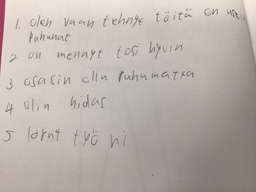 1. olen vaan tehnyt töitä en
puhunut
2 on mennyt tosi hyvin
3 osasin olla puhumatta
4 olin hidas
5 työni